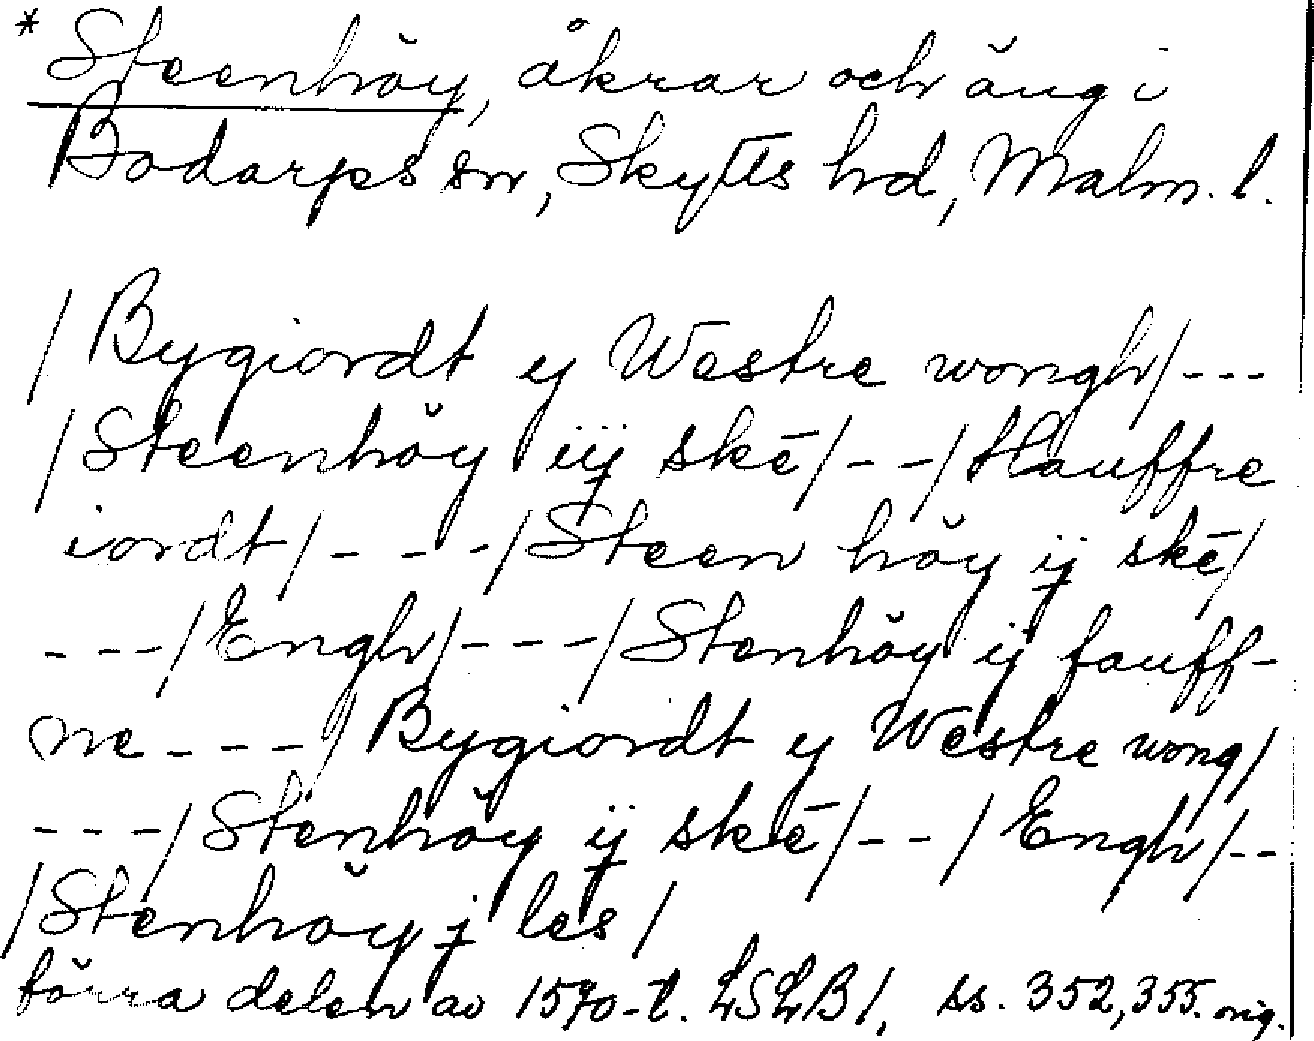 * Steenhöy, åkrar och äng i
Bodarps sn, Skytts hd, Malm. l.
/Bygiordt y Westre wongh/---
/Steenhöy iij skē/--/Hauffre
iordt/---/Steen höy ij skē/
---/Engh/---/Stenhöy ij fauff-
ne---/Bygiordt y Westre wong/
---/Stenhöy ij skē/--/Engh/--
/Stenhöy j les/
förra delen av 1570-t. LSLB1, ss. 352, 355. orig.